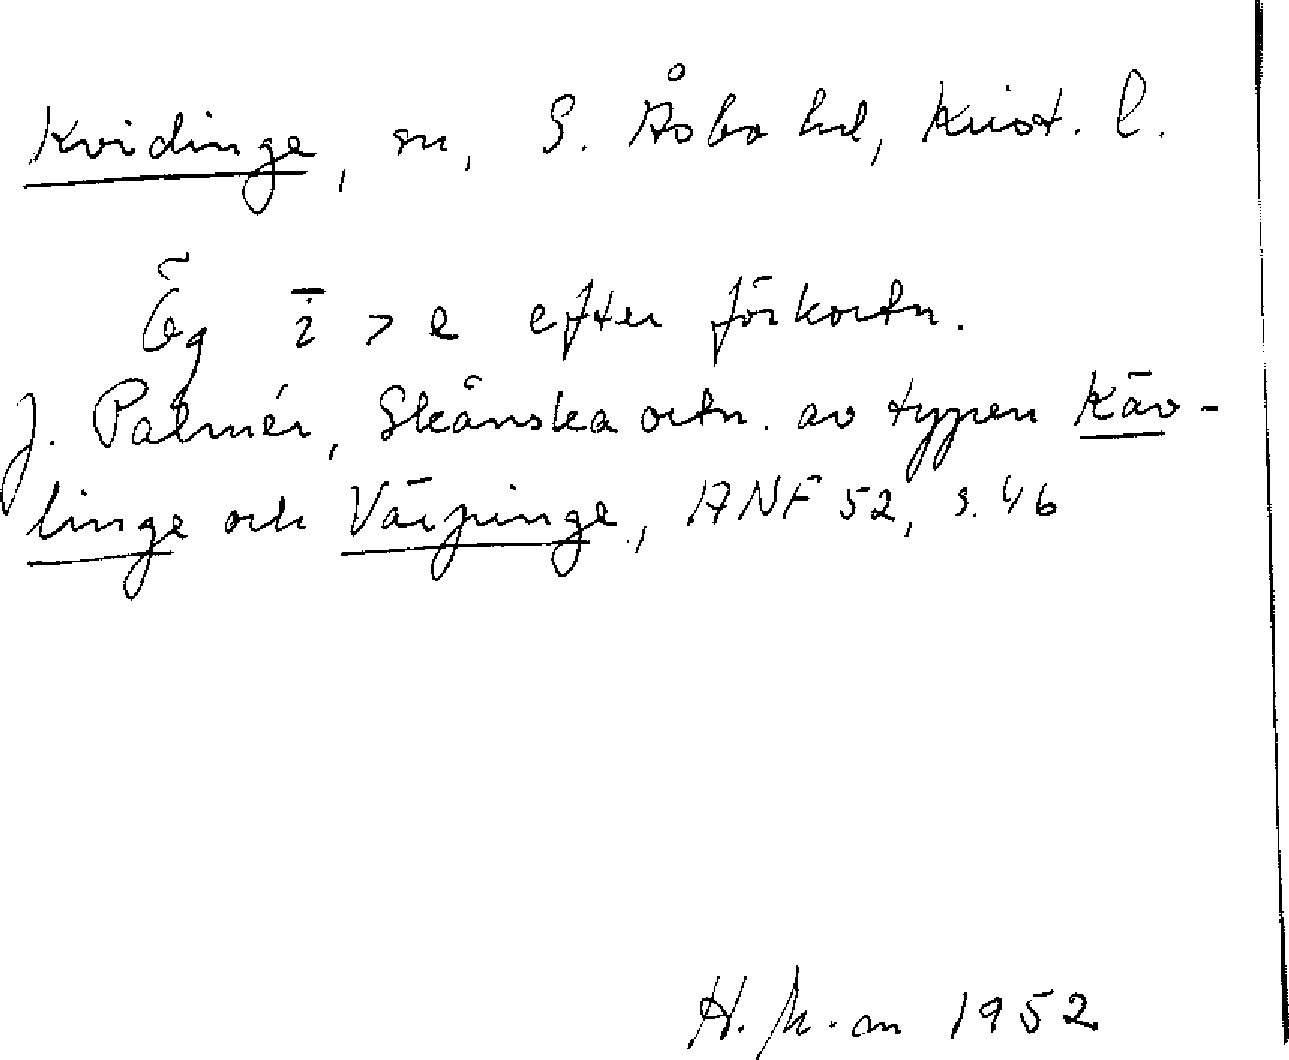 Kvidinge, sn, S. Åsbo hd, Krist. l.
Äg ī > e efter förkortn.
J. Palmér, Skånska ortn. av typen Käv-
linge och Värpinge, ANF 52, s. 46
H. 1952